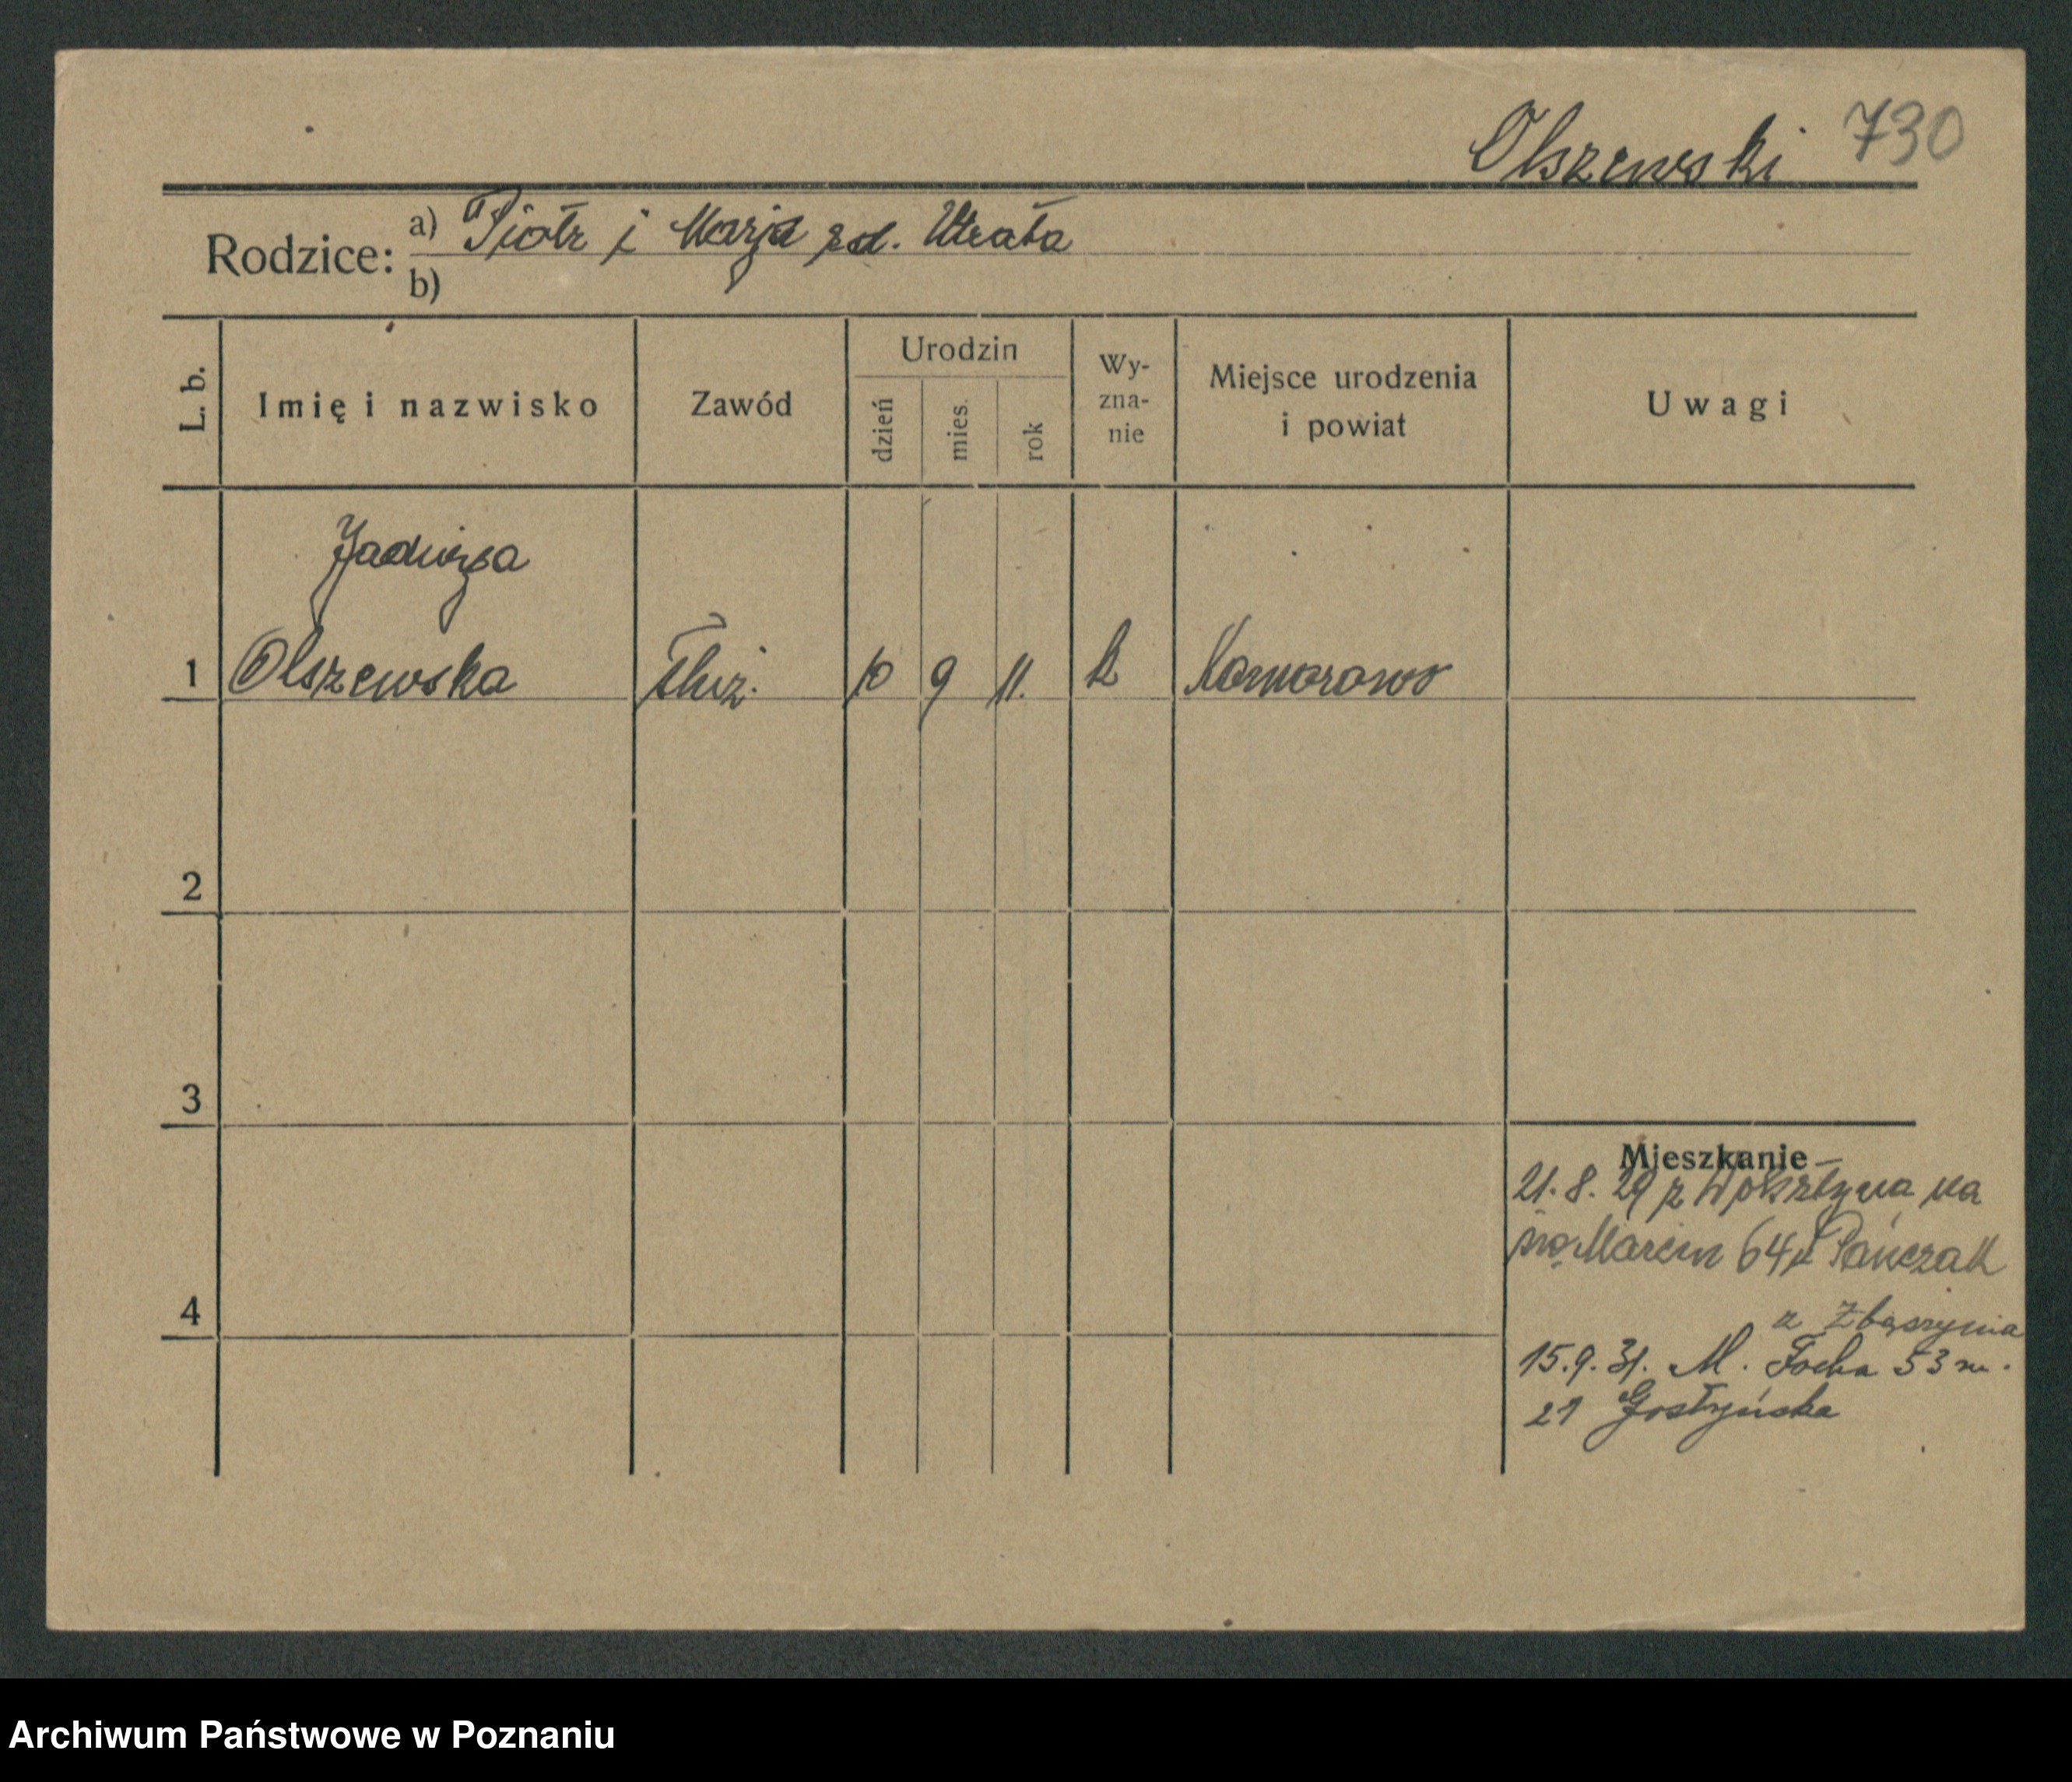 Olszewski 730
Rodzice: a) Piotr i Marja zd. Utrata
b)
L. b.
Imię i nazwisko
Zawód
Urodzin
dzień
mies.
rok
Wy-
zna-
nie
Miejsce urodzenia
i powiat
Uwagi
Jadwiga
1 Olszewska służ. 10 9 11. k Komorowo
2
3
4
Mieszkanie
21.8.29 z na
św. Marcin 64
z Zbąszynia
15.9.31. M. Focha 53 m.
21 Gostyńska
Archiwum Państwowe w Poznaniu